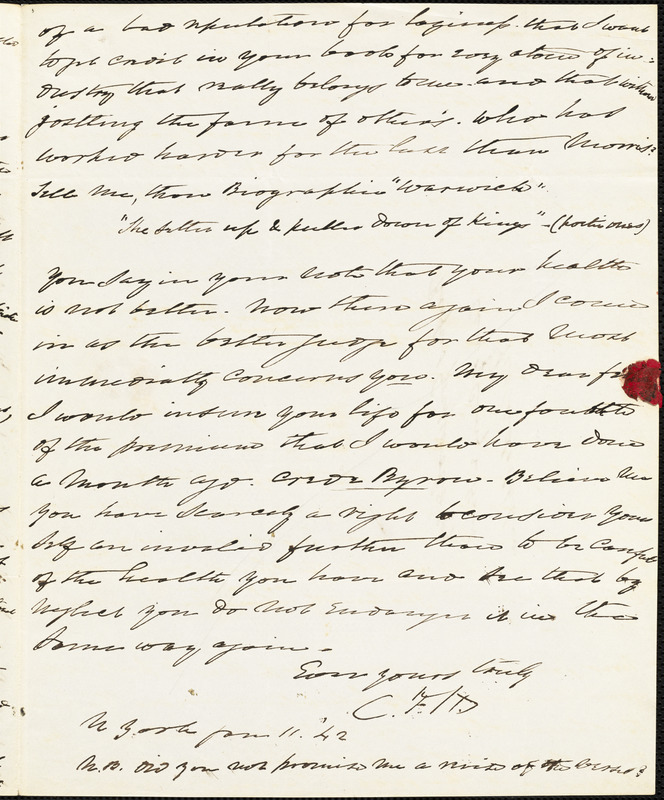 of a bad reputation for laziness that I want
to get credit in your book for every atom of in=
dustry that really belongs to me. and that without
jostling the fame of other's. who has
worked harder for the last than Morris?
Tell me, thou Biographic "Warwick".
"The setter up & puller down of Kings" - (poetic ones)
You say in your note that your health
is not better. Now there again I come
in as the better judge for that most
immediately concerns you. My dear
I would insure your life for one fourth
of the premium that I would have done
a month ago. Crede Byron. Believe me
you have scarcely a right to consider your
self an invalid further than to be careful
of the health you have and see that by
neglect you do not endanger it in the
same way again.
Ever yours truly
C. F. H.
N York Jan 11. '42
N.B. Did you not promise me a of the